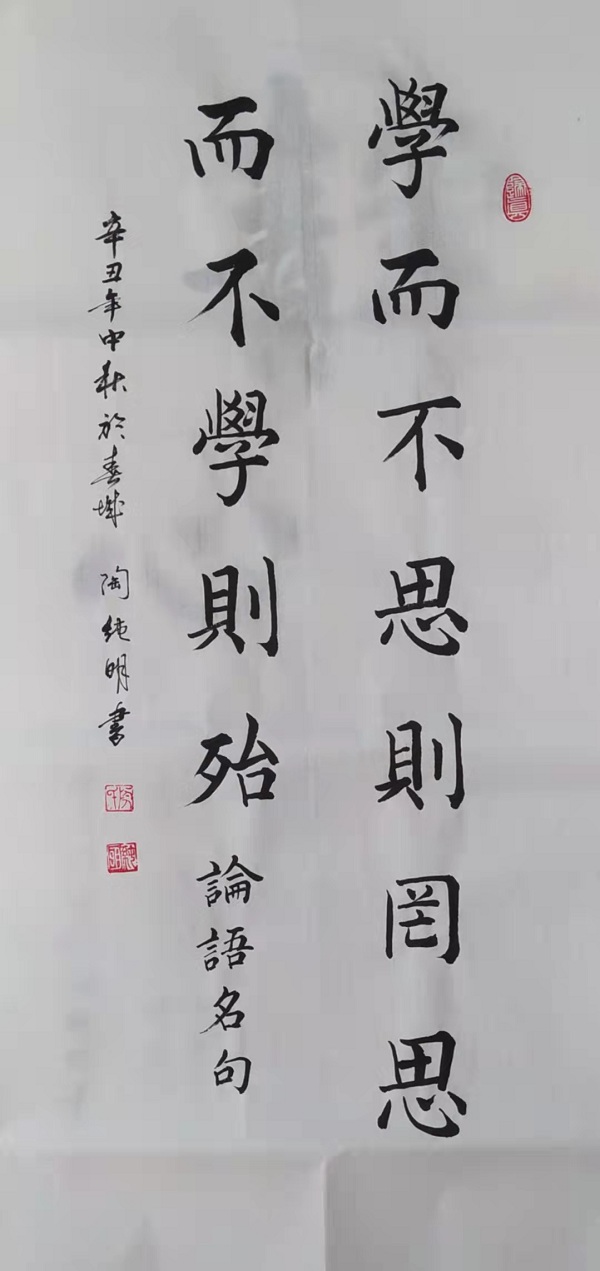 學而不思則罔思
而不學則殆論語名句
辛丑年中秋於春城 陶純明書